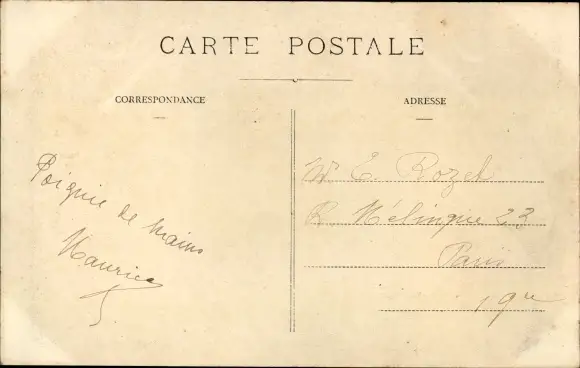 CARTE POSTALE
CORRESPONDANCE
ADRESSE
Poignée de mains
Maurice
Mr E. Rozek
R. Mélingue 23
Paris
19me